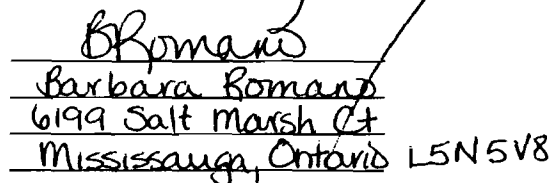 BRomano
Barbara Romano
6199 Salt Marsh Ct
Mississauga, Ontario L5N5V8